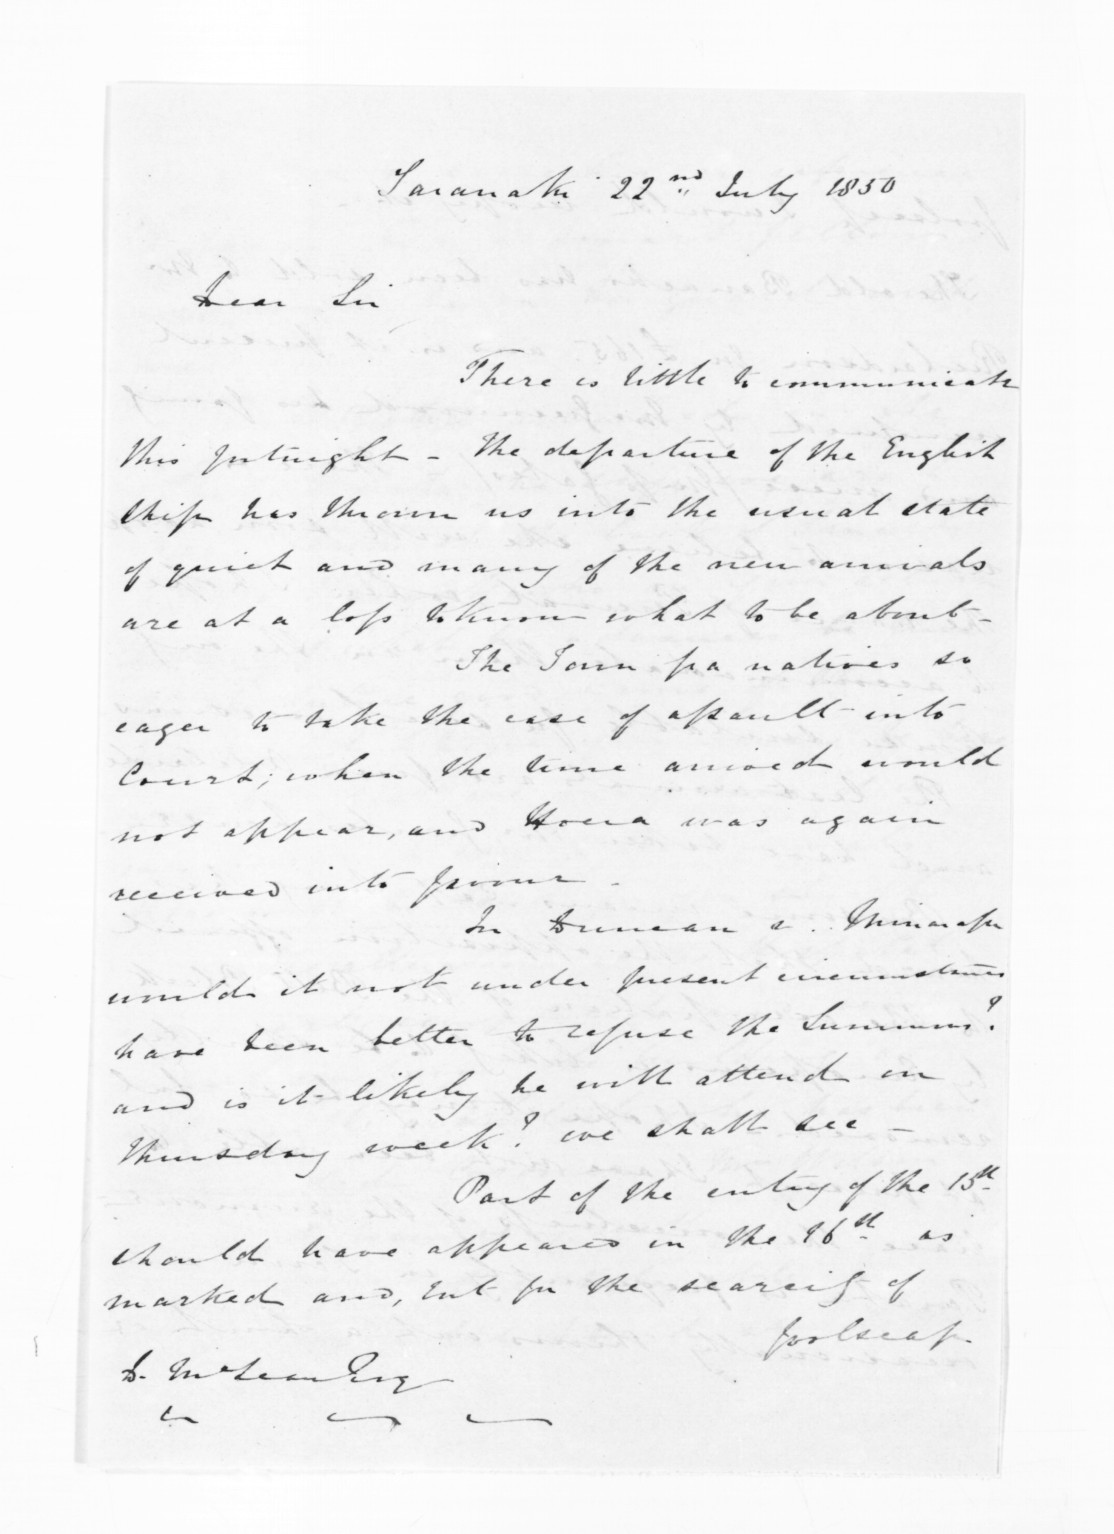 Taranaki 22nd July 1850
Dear Sir
There is little to communicate
this fortnight - The departure of the English
ship has thrown us into the usual state
of quiet and many of the new arrivals
are at a loss to know what to be about -
The Town pa natives so
eager to take the case of assault into
Court; when the time arrived would
not appear, and Hoera was again
received into favour -
In Duncan v.
would it not under present circumstances
have been better to refuse the Summons?
and is it likely he will attend on
Thursday week? we shall see -
Part of the entry of the 15th
should have appeared in the 16th as
marked and, but for the scarcity of
foolscap
D. McLean Esq